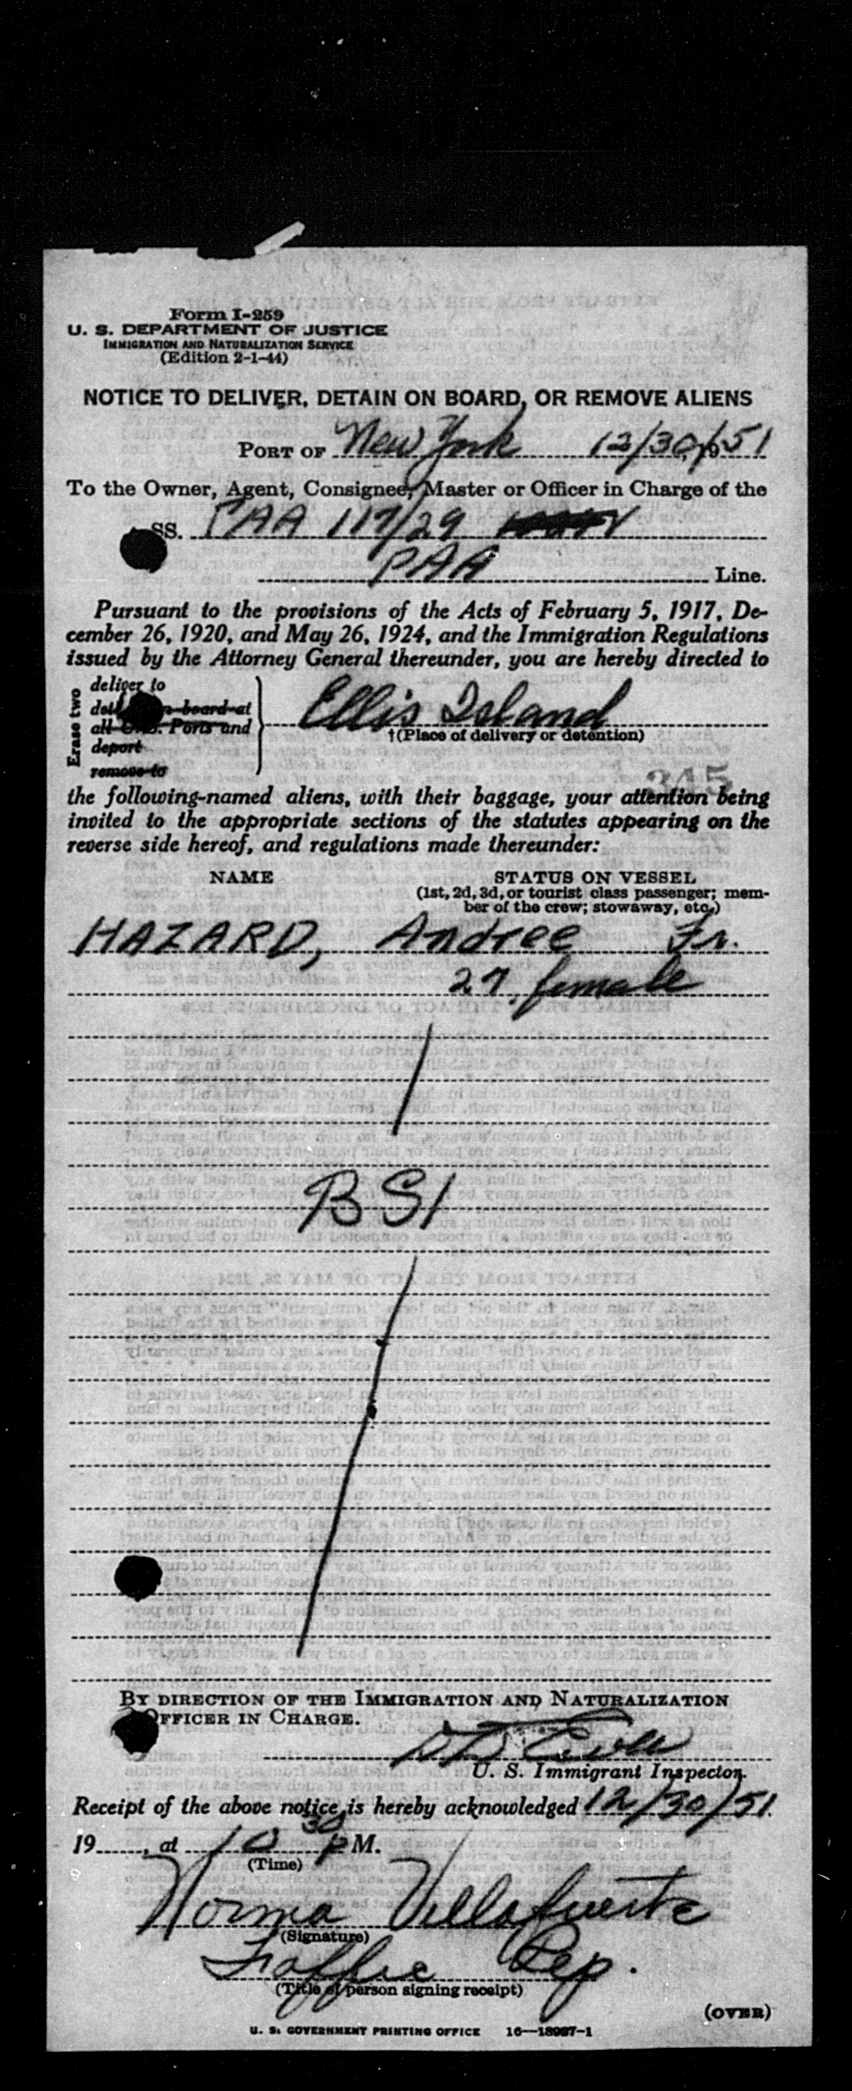 Form I-259
U. S. DEPARTMENT OF JUSTICE
IMMIGRATION AND NATURALIZATION SERVICE
(Edition 2-1-44)
NOTICE TO DELIVER, DETAIN ON BOARD, OR REMOVE ALIENS
PORT OF New York 12/30/1951
To the Owner, Agent, Consignee, Master or Officer in Charge of the
SS. PAA 117/29
PAA Line.
Pursuant to the provisions of the Acts of February 5, 1917, De-
cember 26, 1920, and May 26, 1924, and the Immigration Regulations
issued by the Attorney General thereunder, you are hereby directed to
Erase two
deliver to
on board at
all Ports and
deport
remove to
Ellis Island
†(Place of delivery or detention)
345
the following-named aliens, with their baggage, your attention being
invited to the appropriate sections of the statutes appearing on the
reverse side hereof, and regulations made thereunder:
NAME STATUS ON VESSEL
(1st, 2d, 3d, or tourist class passenger; mem-
ber of the crew; stowaway, etc.)
HAZARD, Andree Fr.
27, female
BSI
BY DIRECTION OF THE IMMIGRATION AND NATURALIZATION
OFFICER IN CHARGE.
U. S. Immigrant Inspector.
Receipt of the above notice is hereby acknowledged 12/30/51
19, at 10 30 P M.
(Time)
Norma Villafuerte
(Signature)
Traffic Rep.
(Title of person signing receipt)
(OVER)
U. S. GOVERNMENT PRINTING OFFICE 16—18997-1